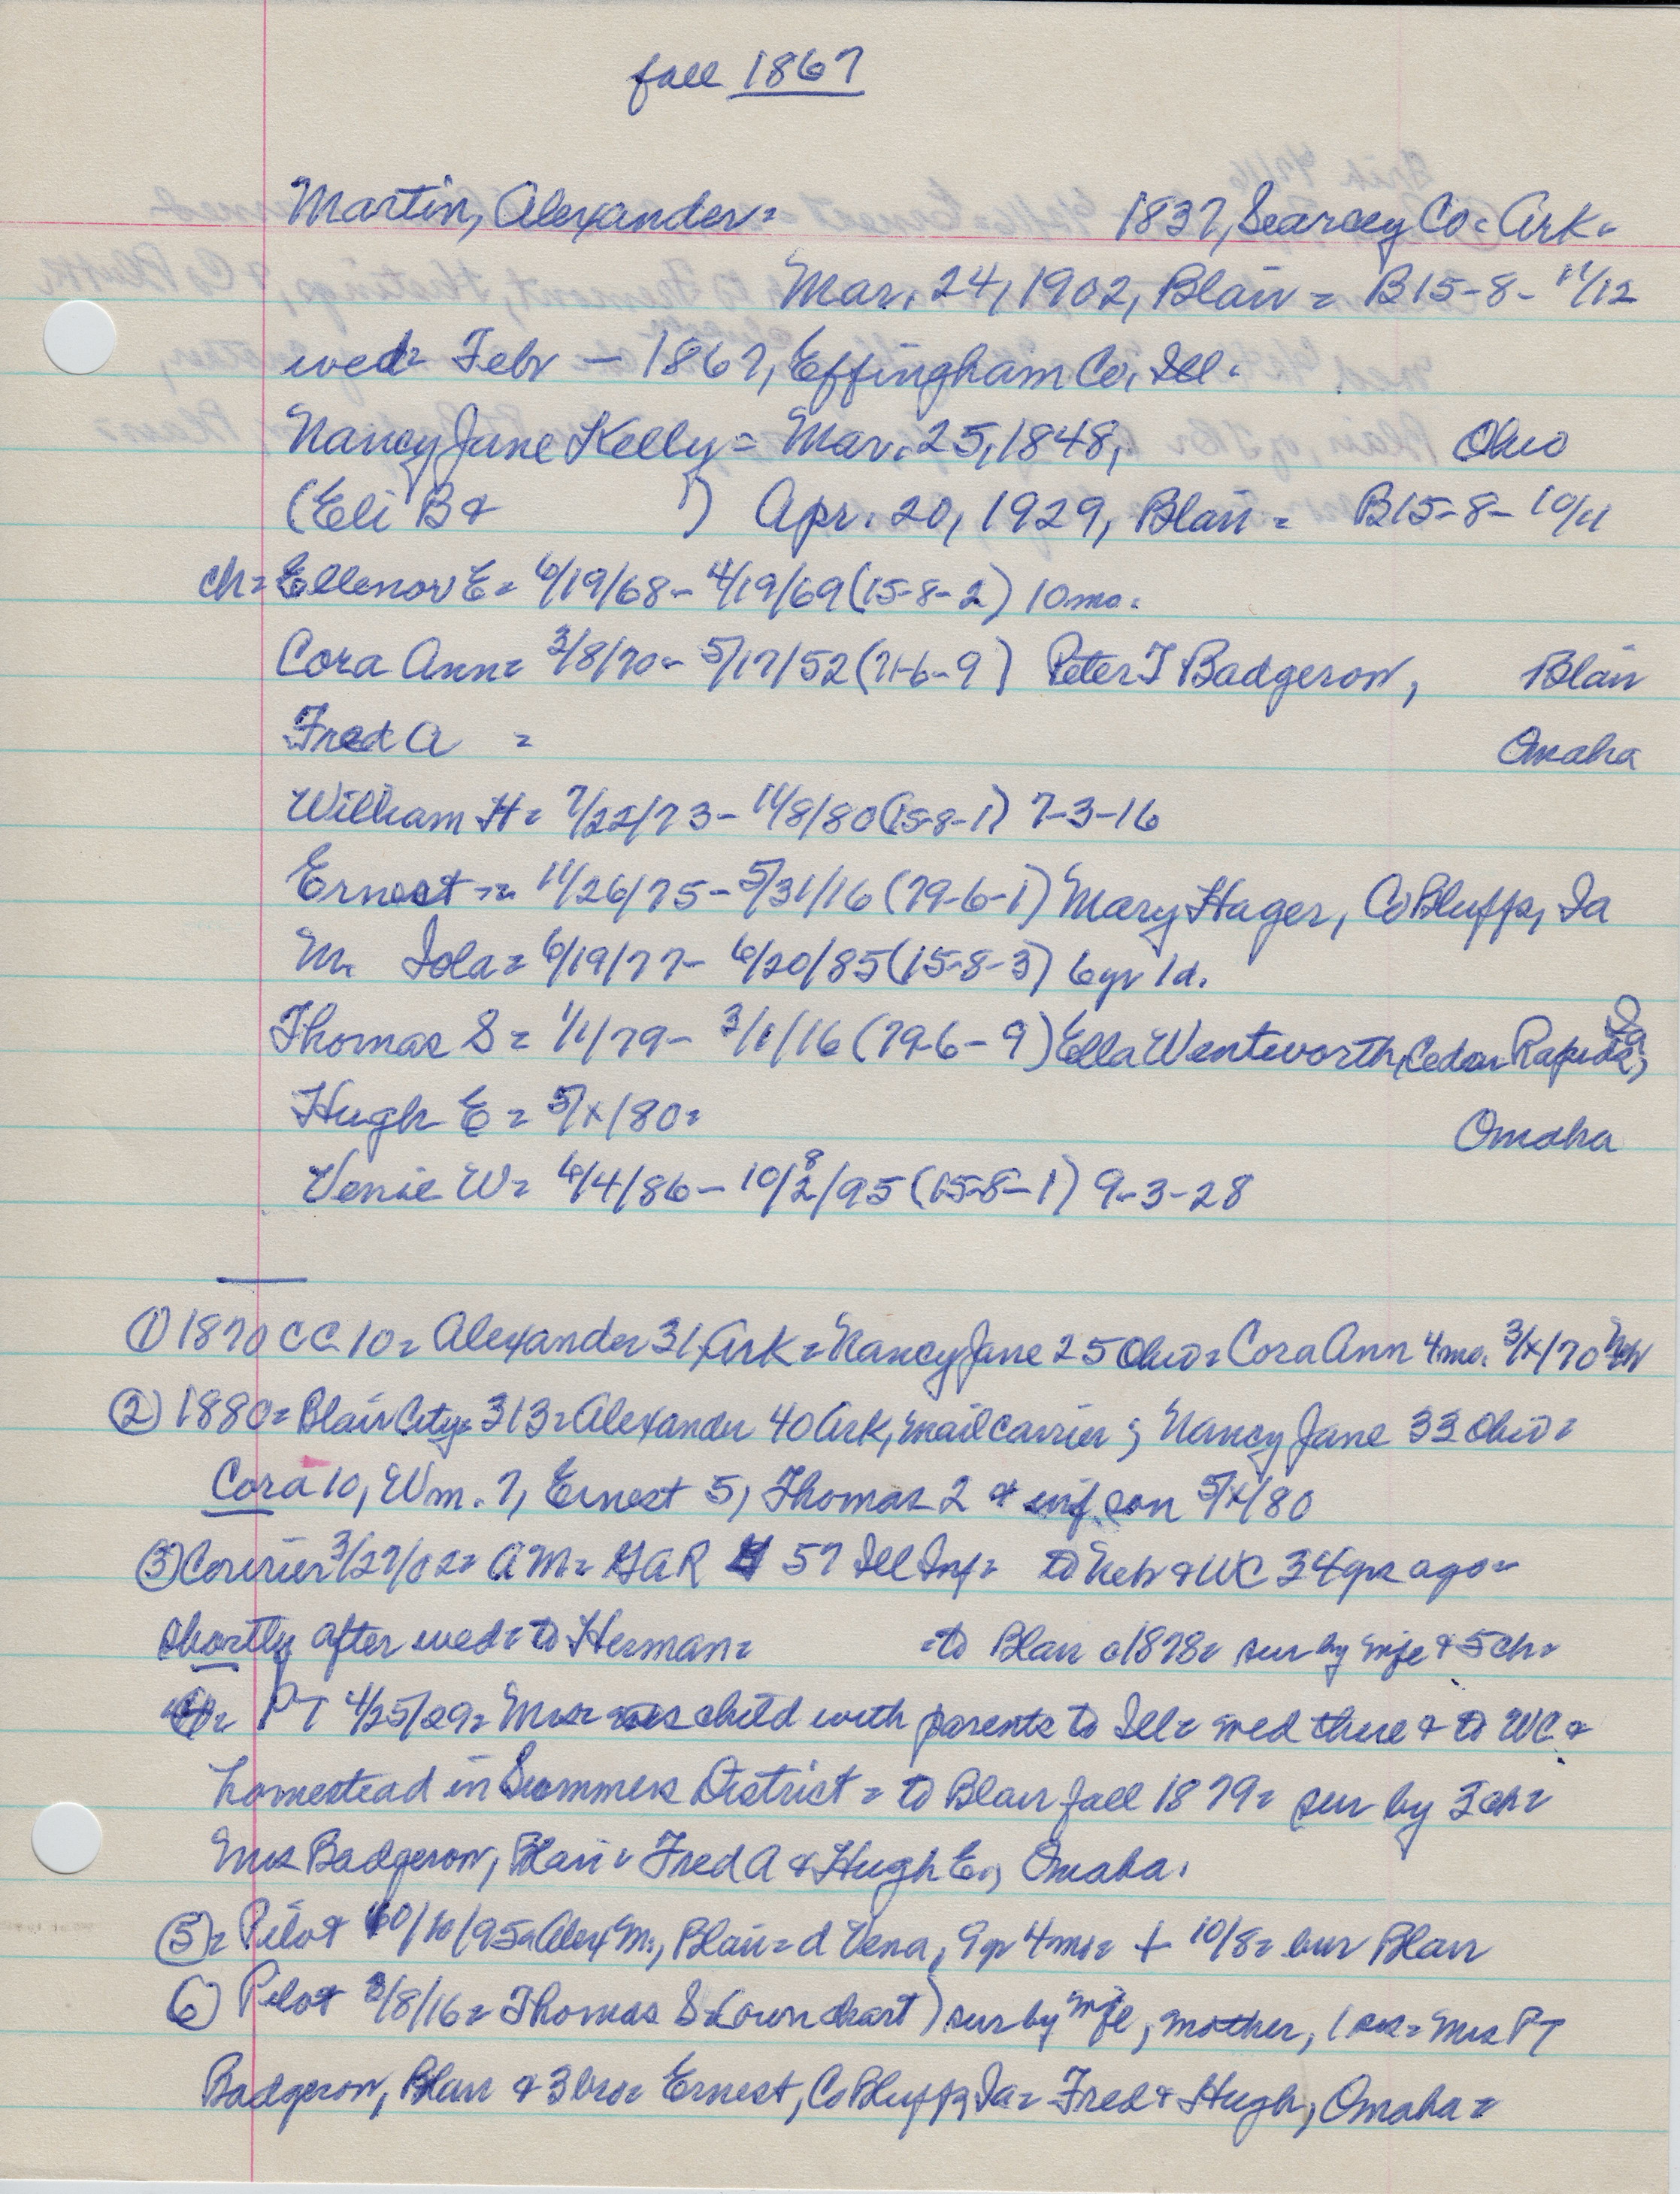 fall 1867
Martin, Alexander= 1837, Searcey Co= Ark=
Mar. 24, 1902, Blair= B15-8- 11/12
wed= Febr — 1867, Effingham Co, Ill.
Nancy Jane Kelly= Mar. 25, 1848, Ohio
(Eli B & ) Apr. 20, 1929, Blair= B15-8- 10/11
ch= Ellenor E= 6/19/68- 4/19/69 (15-8-2) 10mo.
Cora Ann= 3/8/70- 5/17/52 (71-6-9) Peter T Badgerow, Blair
Fred A = Omaha
William H= 7/22/73- 11/8/80 (15-8-1) 7-3-16
Ernest == 11/26/75- 5/31/16 (79-6-1) Mary Hager, Co Bluffs, Ia
M. Iola= 6/19/77- 6/20/85 (15-8-3) 6yr 1d.
Thomas S= 1/1/79- 3/1/16 (79-6-9) Ella Wentworth, Cedar Rapids, Ia
Hugh E= 5/x/80= Omaha
Venie W= 6/4/86- 10/2/95 8 (15-8-1) 9-3-28
① 1870 CC 10= Alexander 31 Ark= Nancy Jane 25 Ohio= Cora Ann 4mo. 3/x/70 Neb
② 1880= Blair City= 313= Alexander 40 Ark, mail carrier; Nancy Jane 33 Ohio=
Cora 10, Wm. 7, Ernest 5, Thomas 2 & inf. son 5/x/80
③ Courier 3/27/02= AM= GAR 57 Ill Inf= to Neb & WC 34yrs ago=
shortly after wed= to Herman= =to Blair c1878= sur by wife & 5ch=
④= PT 4/25/29= Mrs= as child with parents to Ill= wed there & to WC &
homestead in Summers District= to Blair fall 1879= sur by 3ch=
Mrs Badgerow, Blair= Fred A & Hugh E., Omaha.
⑤= Pilot 10/10/95= Alex M., Blair= d Vena, 9yr 4mo= + 10/8= bur Blair
⑥ Pilot 3/8/16= Thomas S (own chart) sur by wife, mother, 1 sis= Mrs PT
Badgerow, Blair & 3 bro= Ernest, Co Bluffs, Ia= Fred & Hugh, Omaha=